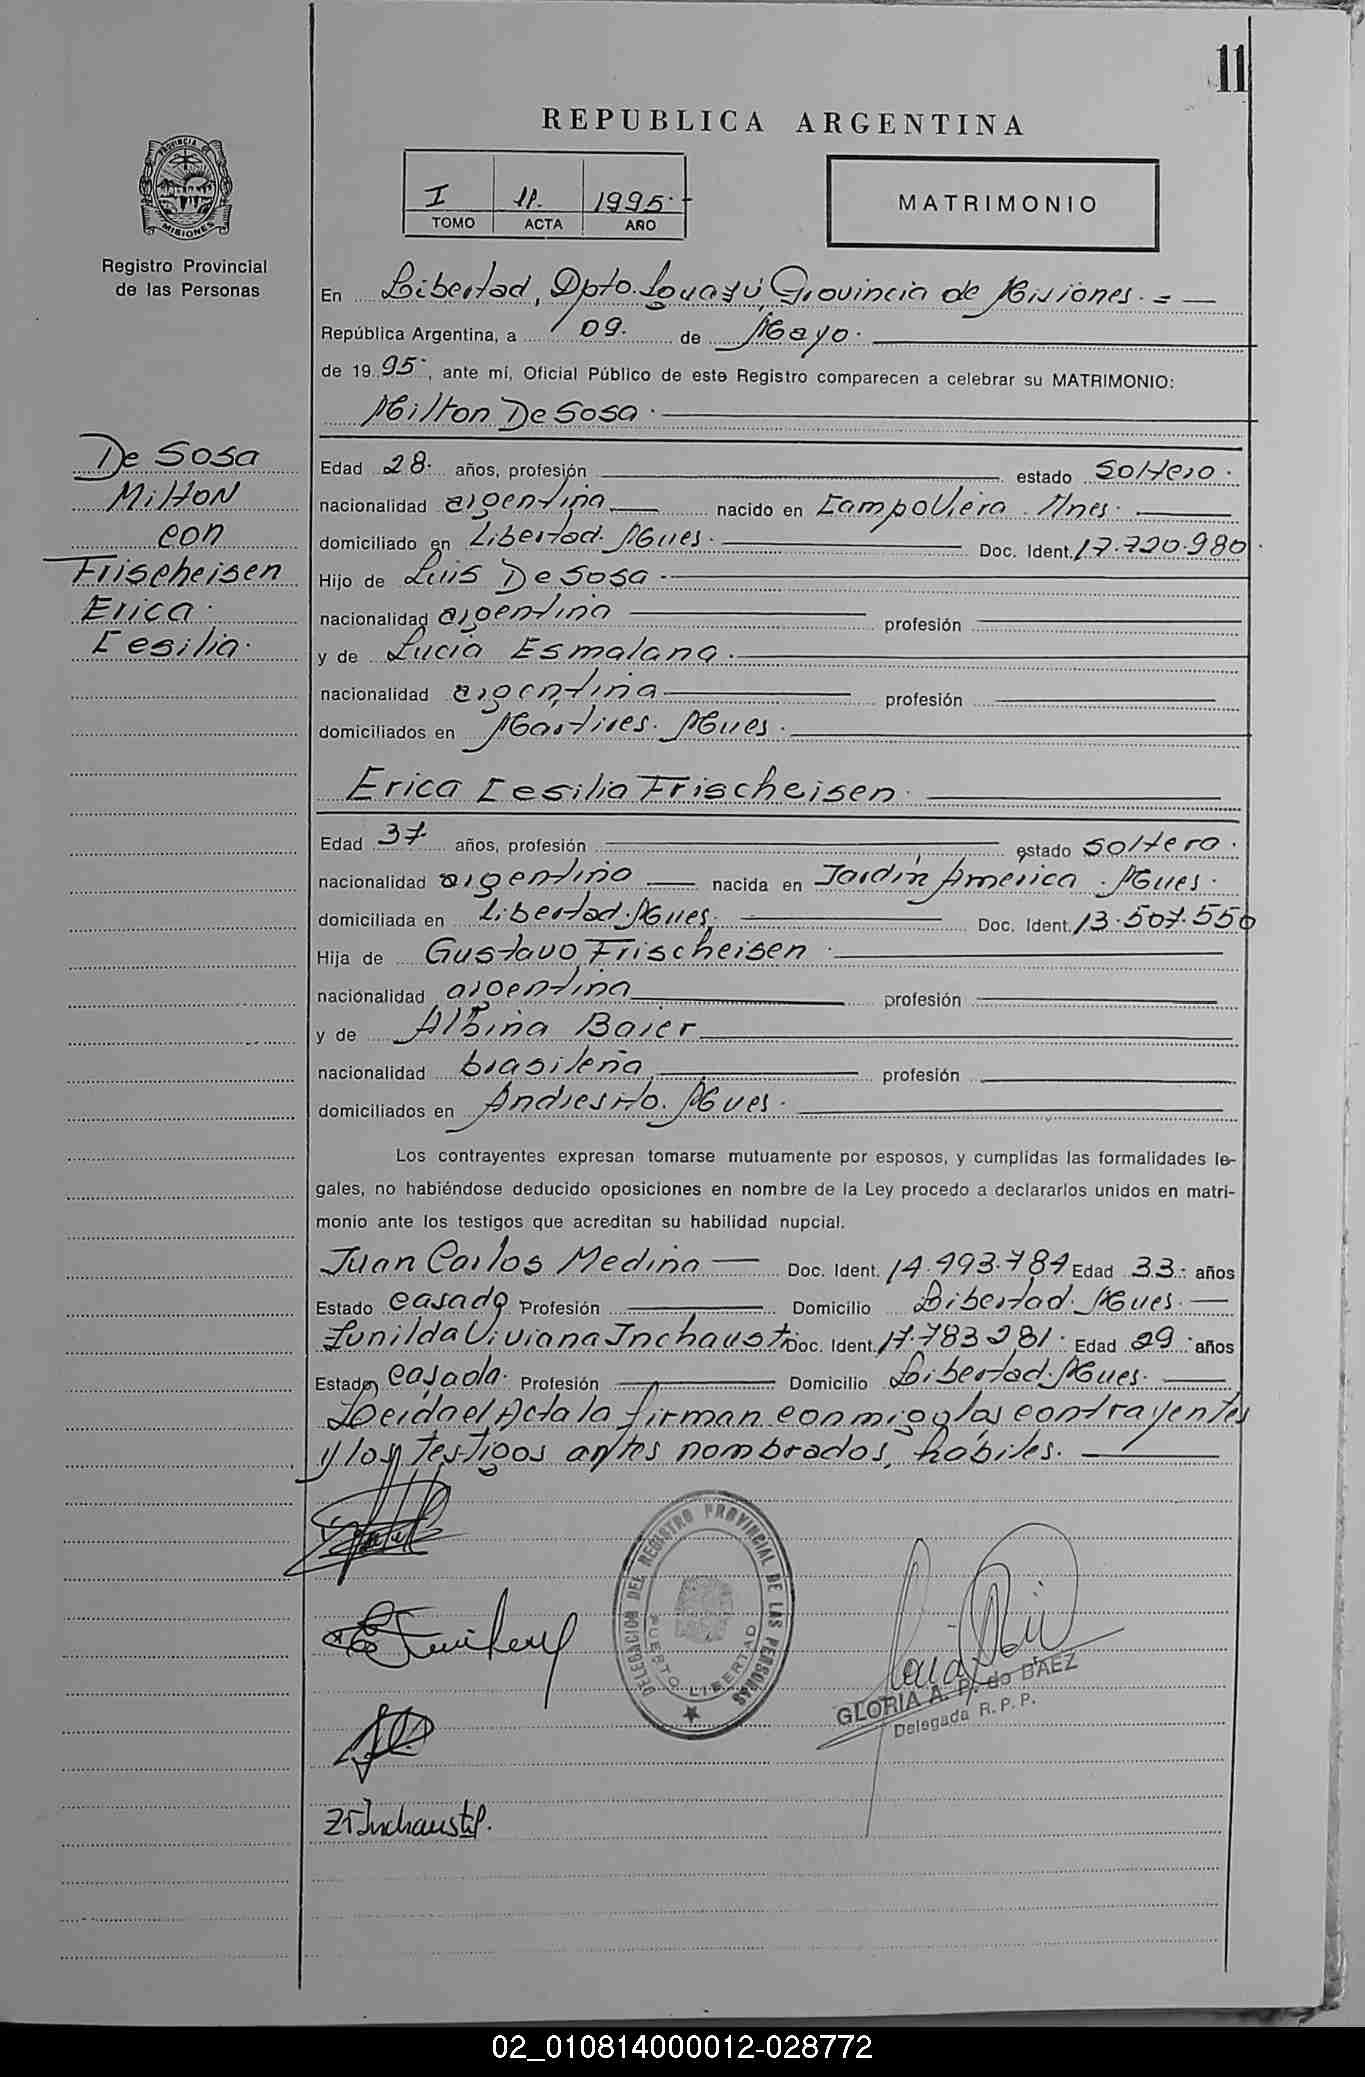 11
REPUBLICA ARGENTINA
I 11. 1995.
TOMO ACTA AÑO
MATRIMONIO
PROVINCIA DE
MISIONES
Registro Provincial
de las Personas
En Libertad, Dpto. Iguazú, Provincia de Misiones. = —
República Argentina, a 09. de Mayo.
de 19 95, ante mí, Oficial Público de este Registro comparecen a celebrar su MATRIMONIO:
Milton De Sosa.
De Sosa
Milton
con
Frischeisen
Erica
Cesilia.
Edad 28. años, profesión estado Soltero.
nacionalidad argentina nacido en CampoViera. Mnes.
domiciliado en Libertad. Mnes. Doc. Ident. 17.720.980.
Hijo de Luis De Sosa.
nacionalidad argentina profesión
y de Lucia Esmalana.
nacionalidad argentina profesión
domiciliados en Martires. Mnes.
Erica Cesilia Frischeisen.
Edad 37 años, profesión estado Soltero.
nacionalidad argentino nacida en Jardin America. Mnes.
domiciliada en Libertad. Mnes. Doc. Ident. 13.507.550
Hija de Gustavo Frischeisen.
nacionalidad argentina profesión
y de Albina Baier
nacionalidad brasileña profesión
domiciliados en Andresito. Mnes.
Los contrayentes expresan tomarse mutuamente por esposos, y cumplidas las formalidades le-
gales, no habiéndose deducido oposiciones en nombre de la Ley procedo a declararlos unidos en matri-
monio ante los testigos que acreditan su habilidad nupcial.
Juan Carlos Medina — Doc. Ident. 14.493.784 Edad 33. años
Estado casado Profesión Domicilio Libertad. Mnes. —
Zunilda Viviana Inchausti Doc. Ident. 17.783281. Edad 29. años
Estado casada. Profesión Domicilio Libertad. Mnes. —
Leida el Acta la firman conmigo, los contrayentes
y los testigos antes nombrados, hábiles.
DELEGACION DEL REGISTRO PROVINCIAL DE LAS PERSONAS
PUERTO LIBERTAD
GLORIA A. P. de BAEZ
Delegada R. P. P.
ZVInchausti.
02_010814000012-028772